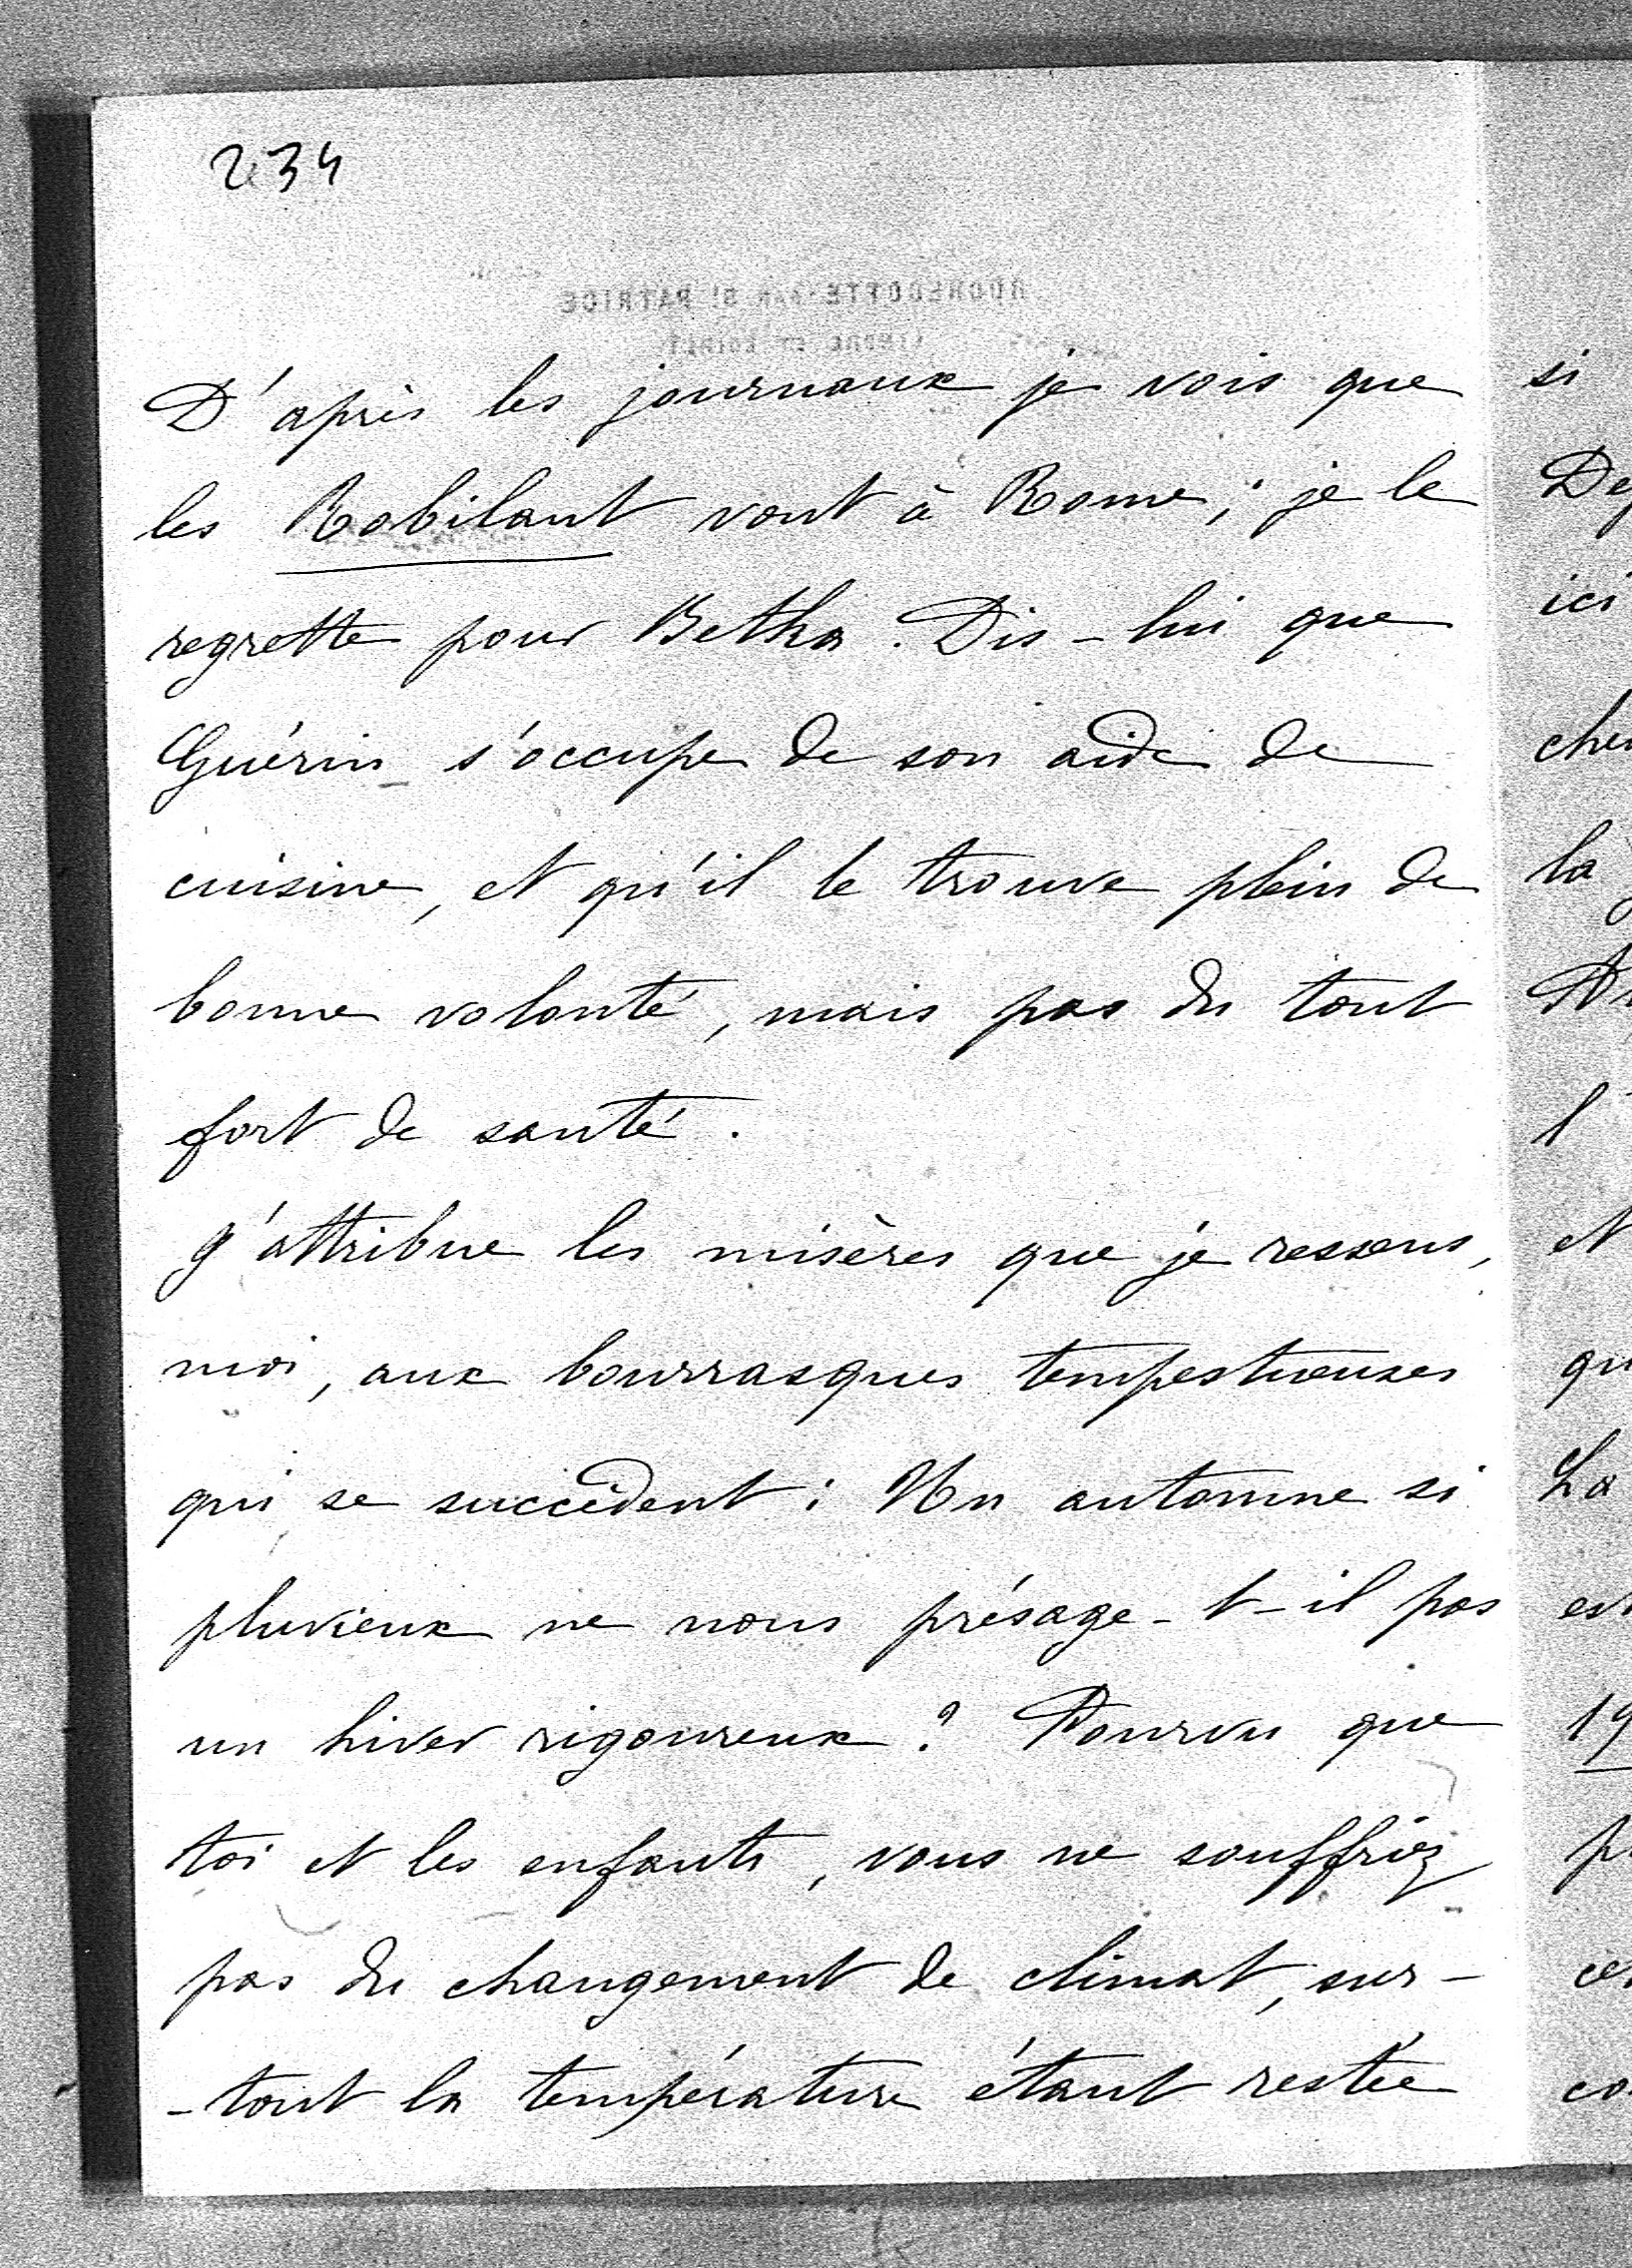 234
D'après les journaux je vois que
les Robilant vont à Rome ; je le
regrette pour Betha. Dis-lui que
Guérin s'occupe de son aide de
cuisine, et qu'il le trouve plein de
bonne volonté, mais pas du tout
fort de santé.
J'attribue les misères que je ressens,
moi, aux bourrasques tempestueuses
qui se succèdent : Un automne si
pluvieux ne nous présage-t-il pas
un hiver rigoureux ? Pourvu que
toi et les enfants, vous ne souffriez
pas du changement de climat, sur-
-tout la température étant restée
si
ici
la
l'
et
La
19